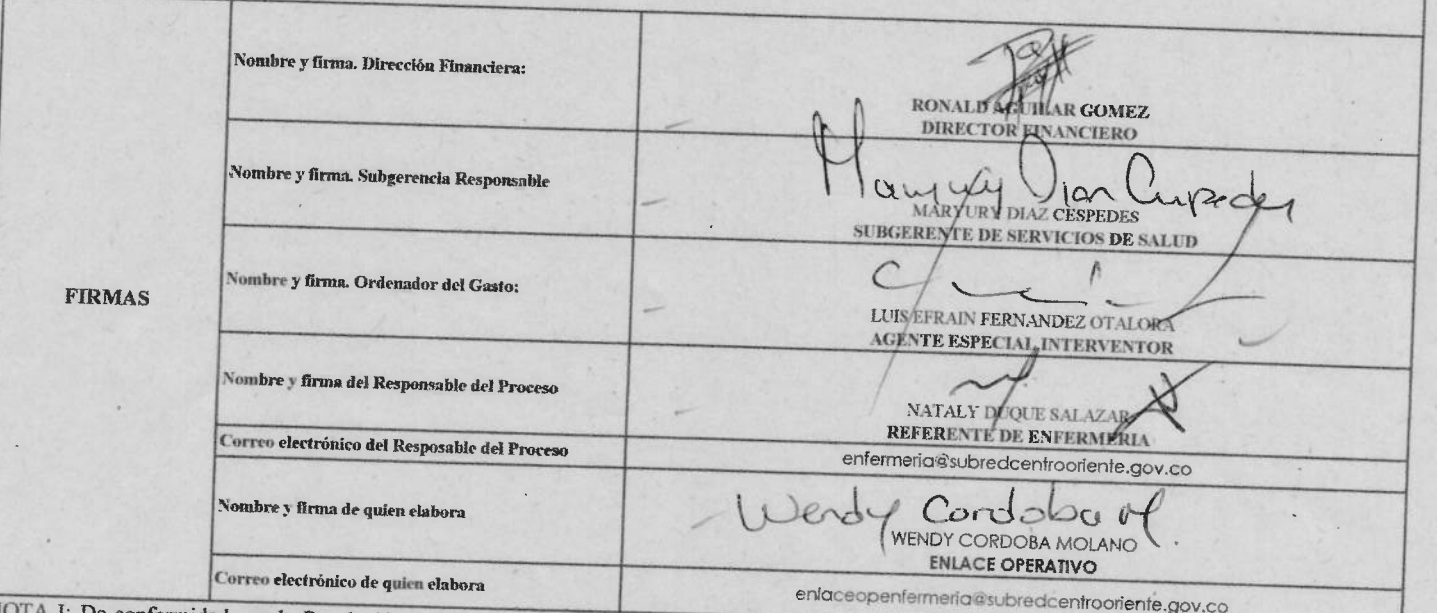 FIRMAS
Nombre y firma. Dirección Financiera:
RONALD AGUILAR GOMEZ
DIRECTOR FINANCIERO
Nombre y firma. Subgerencia Responsable
Maryury Diaz Cespedes
MARYURY DIAZ CESPEDES
SUBGERENTE DE SERVICIOS DE SALUD
Nombre y firma. Ordenador del Gasto:
LUIS EFRAIN FERNANDEZ OTALORA
AGENTE ESPECIAL INTERVENTOR
Nombre y firma del Responsable del Proceso
NATALY DUQUE SALAZAR
REFERENTE DE ENFERMERIA
Correo electrónico del Resposable del Proceso
enfermeria@subredcentrooriente.gov.co
Nombre y firma de quien elabora
Wendy Cordoba M.
WENDY CORDOBA MOLANO
ENLACE OPERATIVO
Correo electrónico de quien elabora
enlaceopenfermeria@subredcentrooriente.gov.co